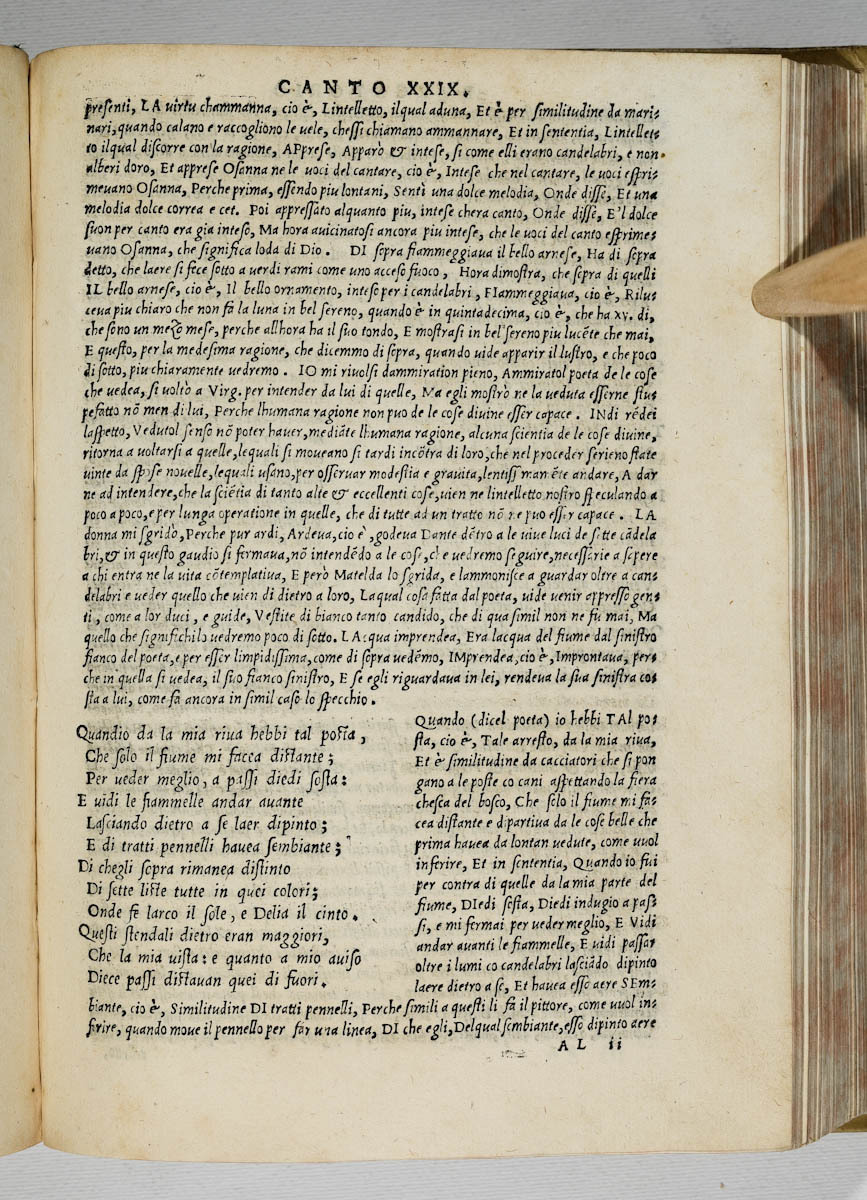 CANTO XXIX.
presenti, LA uirtu chammanna, cio è, Lintelletto, ilqual aduna, Et è per similitudine da mari-
nari, quando calano e raccogliono le uele, chessi chiamano ammannare, Et in sententia, Lintellet-
to ilqual discorre con la ragione, APprese, Apparò & intese, si come elli erano candelabri, e non
alberi doro, Et apprese OSanna ne le uoci del cantare, cio è, Intese che nel cantare, le uoci espri-
meuano Osanna, Perche prima, essendo piu lontani, Sentì una dolce melodia, Onde disse, Et una
melodia dolce correa e cet. Poi appressato alquanto piu, intese chera canto, Onde disse, E'l dolce
suon per canto era gia inteso, Ma hora auicinatosi ancora piu intese, che le uoci del canto esprime-
uano Osanna, che significa loda di Dio. DI sopra fiammeggiaua il bello arnese, Ha di sopra
detto, che laere si fece sotto a uerdi rami come uno acceso fuoco, Hora dimostra, che sopra di quelli
IL bello arnese, cio è, Il bello ornamento, inteso per i candelabri, FIammeggiaua, cio è, Rilu-
ceua piu chiaro che non fà la luna in bel sereno, quando è in quintadecima, cio è, che ha xv. di,
che sono un mezo mese, perche allhora ha il suo tondo, E mostrasi in bel sereno piu lucẽte che mai,
E questo, per la medesima ragione, che dicemmo di sopra, quando uide apparir il lustro, e che poco
di sotto, piu chiaramente uedremo. IO mi riuolsi dammiration pieno, Ammiratol poeta de le cose
che uedea, si uoltò a Virg. per intender da lui di quelle, Ma egli mostrò ne la ueduta esserne stu-
pefatto nõ men di lui, Perche lhumana ragione non puo de le cose diuine esser capace. INdi rẽdei
laspetto, Vedutol senso nõ poter hauer, mediãte lhumana ragione, alcuna scientia de le cose diuine,
ritorna a uoltarsi a quelle, lequali si moueano si tardi incõtra di loro, che nel proceder serieno state
uinte da spose nouelle, lequali usano, per osseruar modestia e grauita, lentissimamẽte andare, A dar
ne ad intendere, che la sciẽtia di tanto alte & eccellenti cose, uien ne lintelletto nostro speculando a
poco a poco, e per lunga operatione in quelle, che di tutte ad un tratto nõ ne puo esser capace. LA
donna mi sgridò, Perche pur ardi, Ardeua, cio è, godeua Dante dẽtro a le uiue luci de sette cãdela
bri, & in questo gaudio si fermaua, nõ intendẽdo a le cose, che uedremo seguire, necessarie a sapere
a chi entra ne la uita cõtemplatiua, E però Matelda lo sgrida, e lammonisce a guardar oltre a can-
delabri e ueder quello che uien di dietro a loro, Laqual cosa fatta dal poeta, uide uenir appresso gen-
ti, come a lor duci, e guide, Vestite di bianco tanto candido, che di qua simil non ne fu mai, Ma
quello che significhi lo uedremo poco di sotto. LAcqua imprendea, Era lacqua del fiume dal sinistro
fianco del poeta, e per esser limpidissima, come di sopra uedẽmo, IMprendea, cio è, Improntaua, per-
che in quella si uedea, il suo fianco sinistro, E se egli riguardaua in lei, rendeua la sua sinistra co-
sta a lui, come fà ancora in simil caso lo specchio.
Quandio da la mia riua hebbi tal posta,
Che solo il fiume mi facea distante;
Per ueder meglio, a passi diedi sosta:
E uidi le fiammelle andar auante
Lasciando dietro a se laer dipinto;
E di tratti pennelli hauea sembiante;
Di chegli sopra rimanea distinto
Di sette liste tutte in quei colori;
Onde fè larco il sole, e Delia il cinto.
Questi stendali dietro eran maggiori,
Che la mia uista: e quanto a mio auiso
Diece passi distauan quei di fuori.
Quando (dicel poeta) io hebbi TAl po-
sta, cio è, Tale arresto, da la mia riua,
Et è similitudine da cacciatori che si pon
gano a le poste co cani aspettando la fiera
chesca del bosco, Che solo il fiume mi fa-
cea distante e dipartiua da le cose belle che
prima hauea da lontan uedute, come uuol
inferire, Et in sententia, Quando io fui
per contra di quelle da la mia parte del
fiume, DIedi sosta, Diedi indugio a pas-
si, e mi fermai per ueder meglio, E VIdi
andar auanti le fiammelle, E uidi passar
oltre i lumi co candelabri lasciãdo dipinto
laere dietro a se, Et hauea esso aere SEm-
biante, cio è, Similitudine DI tratti pennelli, Perche simili a questi li fà il pittore, come uuol in-
ferire, quando moue il pennello per far una linea, DI che egli, Delqual sembiante, esso dipinto aere
AL ii